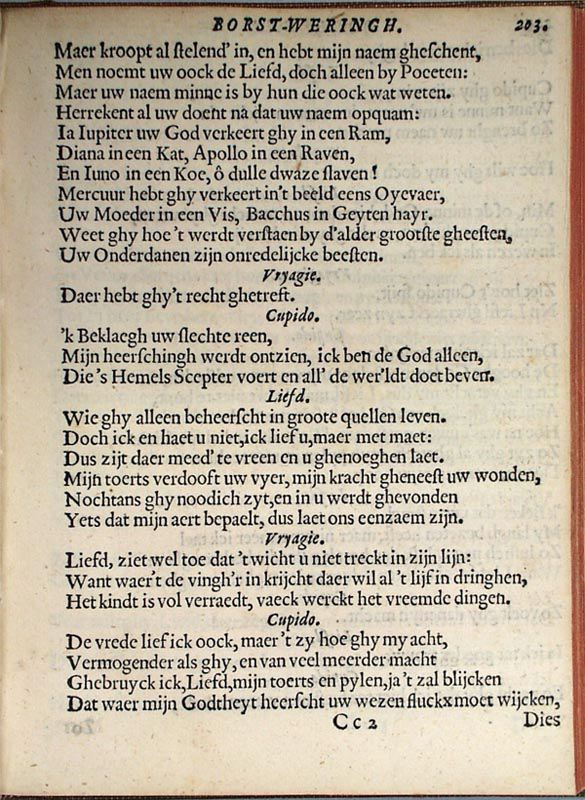 BORST-WERINGH. 203.
Maer kroopt al stelend' in, en hebt mijn naem gheschent,
Men noemt uw oock de Liefd, doch alleen by Poeeten:
Maer uw naem minne is by hun die oock wat weten.
Herrekent al uw doent nà dat uw naem opquam:
Ia Iupiter uw God verkeert ghy in een Ram,
Diana in een Kat, Apollo in een Raven,
En Iuno in een Koe, ô dulle dwaze slaven!
Mercuur hebt ghy verkeert in't beeld eens Oyevaer,
Uw Moeder in een Vis, Bacchus in Geyten hayr.
Weet ghy hoe 't werdt verstaen by d'alder grootste gheesten,
Uw Onderdanen zijn onredelijcke beesten.
Vryagie.
Daer hebt ghy't recht ghetreft.
Cupido.
'k Beklaegh uw slechte reen,
Mijn heerschingh werdt ontzien, ick ben de God alleen,
Die 's Hemels Scepter voert en all' de wer'ldt doet beven.
Liefd.
Wie ghy alleen beheerscht in groote quellen leven.
Doch ick en haet u niet, ick lief u, maer met maet:
Dus zijt daer meed' te vreen en u ghenoeghen laet.
Mijn toerts verdooft uw vyer, mijn kracht gheneest uw wonden,
Nochtans ghy noodich zyt, en in u werdt ghevonden
Yets dat mijn aert bepaelt, dus laet ons eenzaem zijn.
Vryagie.
Liefd, ziet wel toe dat 't wicht u niet treckt in zijn lijn:
Want waer't de vingh'r in krijcht daer wil al 't lijf in dringhen,
Het kindt is vol verraedt, vaeck werckt het vreemde dingen.
Cupido.
De vrede lief ick oock, maer 't zy hoe ghy my acht,
Vermogender als ghy, en van veel meerder macht
Ghebruyck ick, Liefd, mijn toerts en pylen, ja 't zal blijcken
Dat waer mijn Godtheyt heerscht uw wezen fluckx moet wijcken,
Cc2 Dies